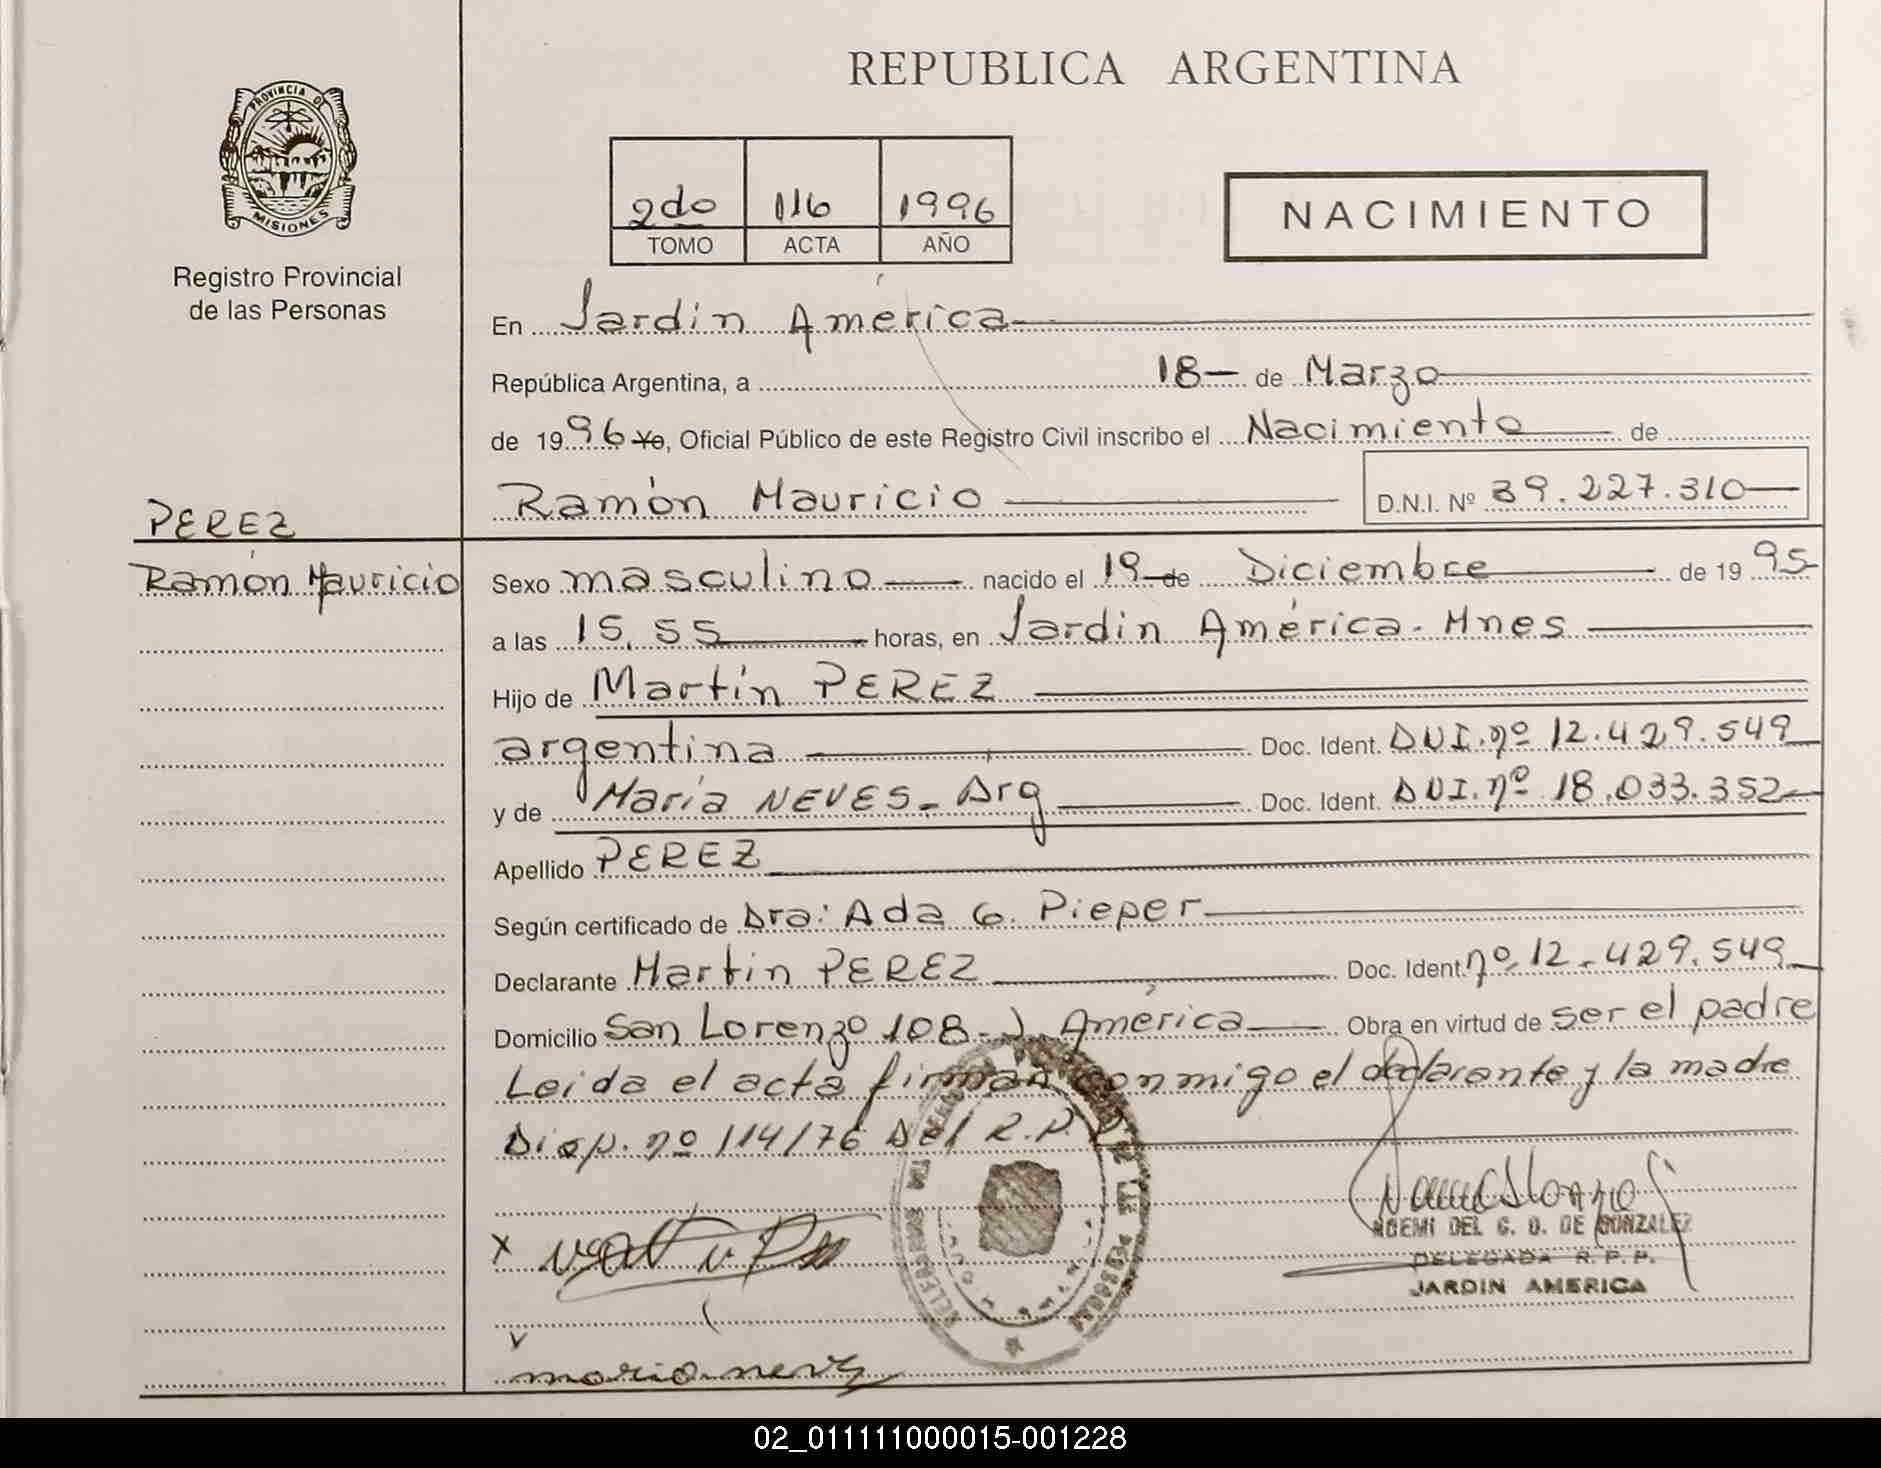 REPUBLICA ARGENTINA
PROVINCIA DE
MISIONES
Registro Provincial
de las Personas
2do 116 1996
TOMO ACTA AÑO
NACIMIENTO
En Jardín América
República Argentina, a 18 de Marzo
de 1996 Yo, Oficial Público de este Registro Civil inscribo el Nacimiento de
Ramón Mauricio D.N.I. Nº 39.227.310
PEREZ
Ramón Mauricio
Sexo masculino nacido el 19 de Diciembre de 1995
a las 15,55 horas, en Jardín América - Mnes
Hijo de Martín PEREZ
argentina Doc. Ident. DNI.nº 12.429.549
y de María NEVES - Arg Doc. Ident. DNI.nº 18.033.352
Apellido PEREZ
Según certificado de Dra: Ada G. Pieper
Declarante Martín PEREZ Doc. Ident. nº 12.429.549
Domicilio San Lorenzo 108 - J. América Obra en virtud de ser el padre
Leida el acta firman conmigo el declarante y la madre
Disp. nº 114/76 Del R.P.P.
NOEMI DEL C. D. DE GONZALEZ
DELEGADA R.P.P.
JARDIN AMERICA
maria neves
02_011111000015-001228